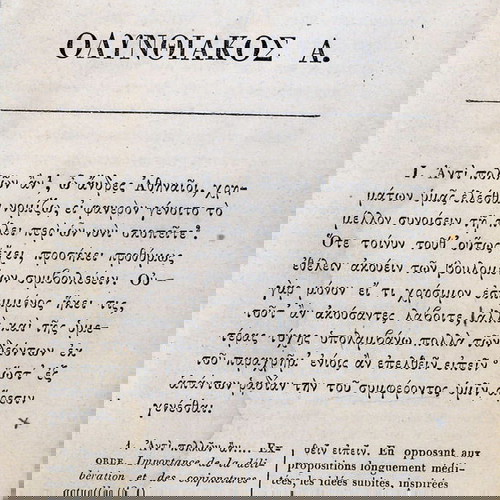 ΟΛΥΝΘΙΑΚΟΣ Α.
I. Ἀντὶ πολλῶν ἂν, ὦ ἄνδρες Ἀθηναῖοι, χρη-
μάτων ὑμᾶς ἑλέσθαι νομίζω, εἰ φανερὸν γένοιτο τὸ
μέλλον συνοίσειν τῇ πόλει περὶ ὧν νυνὶ σκοπεῖτε.
Ὅτε τοίνυν τοῦθ' οὕτως ἔχει προσήκει προθύμως
ἐθέλειν ἀκούειν τῶν βουλομένων συμβουλεύειν. Οὐ
γὰρ μόνον εἴ τι χρήσιμον ἐσκεμμένος ἥκει τις,
τοῦτ' ἂν ἀκούσαντες λάβοιτε, ἀλλὰ καὶ τῆς ὑμε-
τέρας τύχης ὑπολαμβάνω πολλὰ τῶν δεόντων ἐκ
τοῦ παραχρῆμα ἐνίοις ἂν ἐπελθεῖν εἰπεῖν· ὥστ' ἐξ
ἁπάντων ῥᾳδίαν τὴν τοῦ συμφέροντος ὑμῖν αἵρεσιν
γενέσθαι.
1. Ἀντὶ πολλῶν ἂν... EX-
ORDE. Importance de la déli-
bération et des conjonctures
actuelles (§ 1)
θεῖν εἰπεῖν. En opposant aux
propositions longuement médi-
tées, les idées subites, inspirées